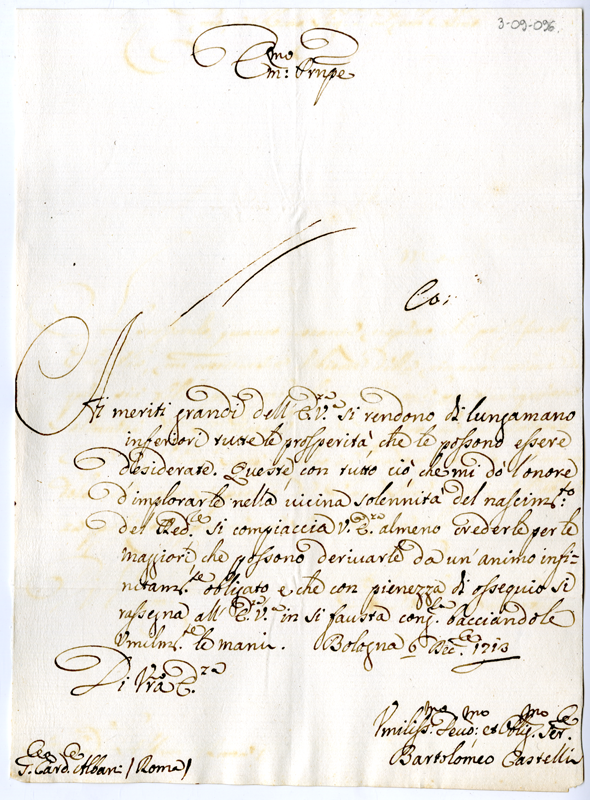 3-09-096
E.mo
Em: Prnpe
Co:
Ai meriti grandi dell'E.V.ra si rendono di lungamano
inferiori tutte le prosperità, che le possono essere
desiderate. Queste con tutto ciò, che mi dò l'onore
d'implorarle nella vicina solennità del nascim.to
del Red.e si compiaccia V. E.ra almeno crederle per le
maggiori che possono derivarle da un'animo infi=
nitam.te obligato e che con pienezza di ossequio si
rassegna all'E.V.ra in si fausta cong.la bacciandole
Vmilm.te le mani. Bologna 6 Dec.e 1713
Di Vra E.za
Vmiliss.mo Deuo:mo et Oblig.mo Ser.e
Bartolomeo Castelli
Card.e Albani (Roma)